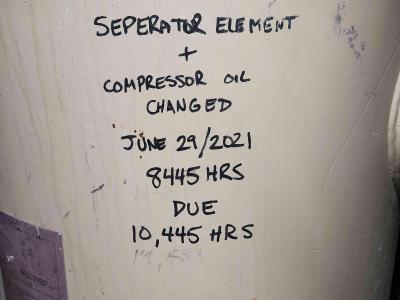 SEPERATOR ELEMENT
+
COMPRESSOR OIL
CHANGED
JUNE 29/2021
8445 HRS
DUE
10,445 HRS